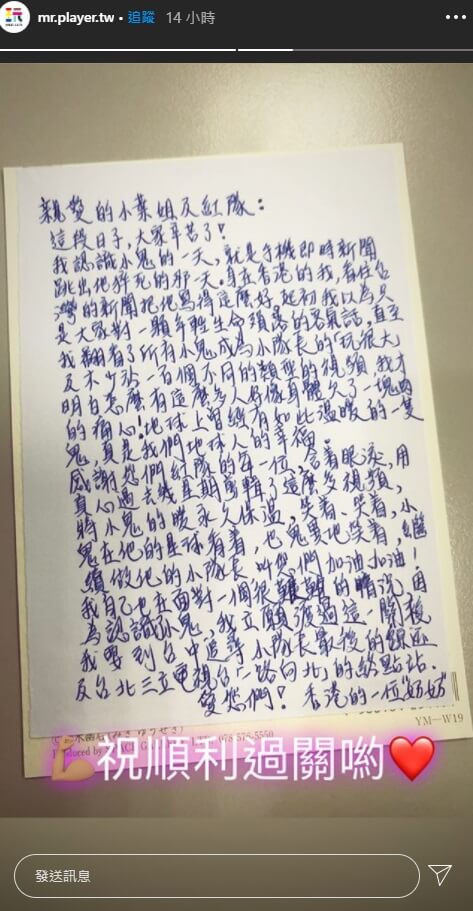 mr.player.tw • 追蹤 14 小時
親愛的小葉姐及紅隊：
這段日子，大家辛苦了！
我認識小鬼的一天，就是手機即時新聞
跳出他猝死的那一天。身在香港的我，看住台
灣的新聞把他寫得這麼好，起初我以為只
是大家對一顆年輕生命殞落的客氣話，直至
我翻看了所有小鬼成為小隊長的「玩很大」
及不少站一百個不同的類型的視頻，我才
明白怎麼有這麼多人好像身體欠了一塊肉
的痛心！地球上曾經有如此溫暖的一隻
鬼，真是我們地球人的幸福。
感謝您們紅隊的每一位，含着眼淚，用
真心過去幾星期剪輯了這麼多視頻，
將小鬼的暖永久保溫，笑着、笑着，小
鬼在他的星球看着，也鬼異地笑着，繼
續做他的小隊長，叫您們加油加油！
我自己也在面對一個很艱難的情況，因
為認識小鬼，我立願渡過這一關後，
我要到台中追尋小隊長最後的蹤跡
及台北三立電視台「一路向北」的終點站。
愛您們！ 香港的一位"奶奶"
YM-W19
💪祝順利過關喲❤️
發送訊息